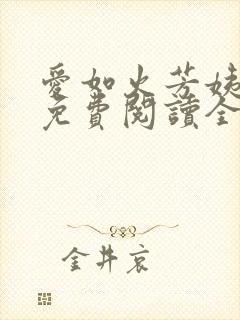 愛如火芳姨
免費閱讀全
金井哀